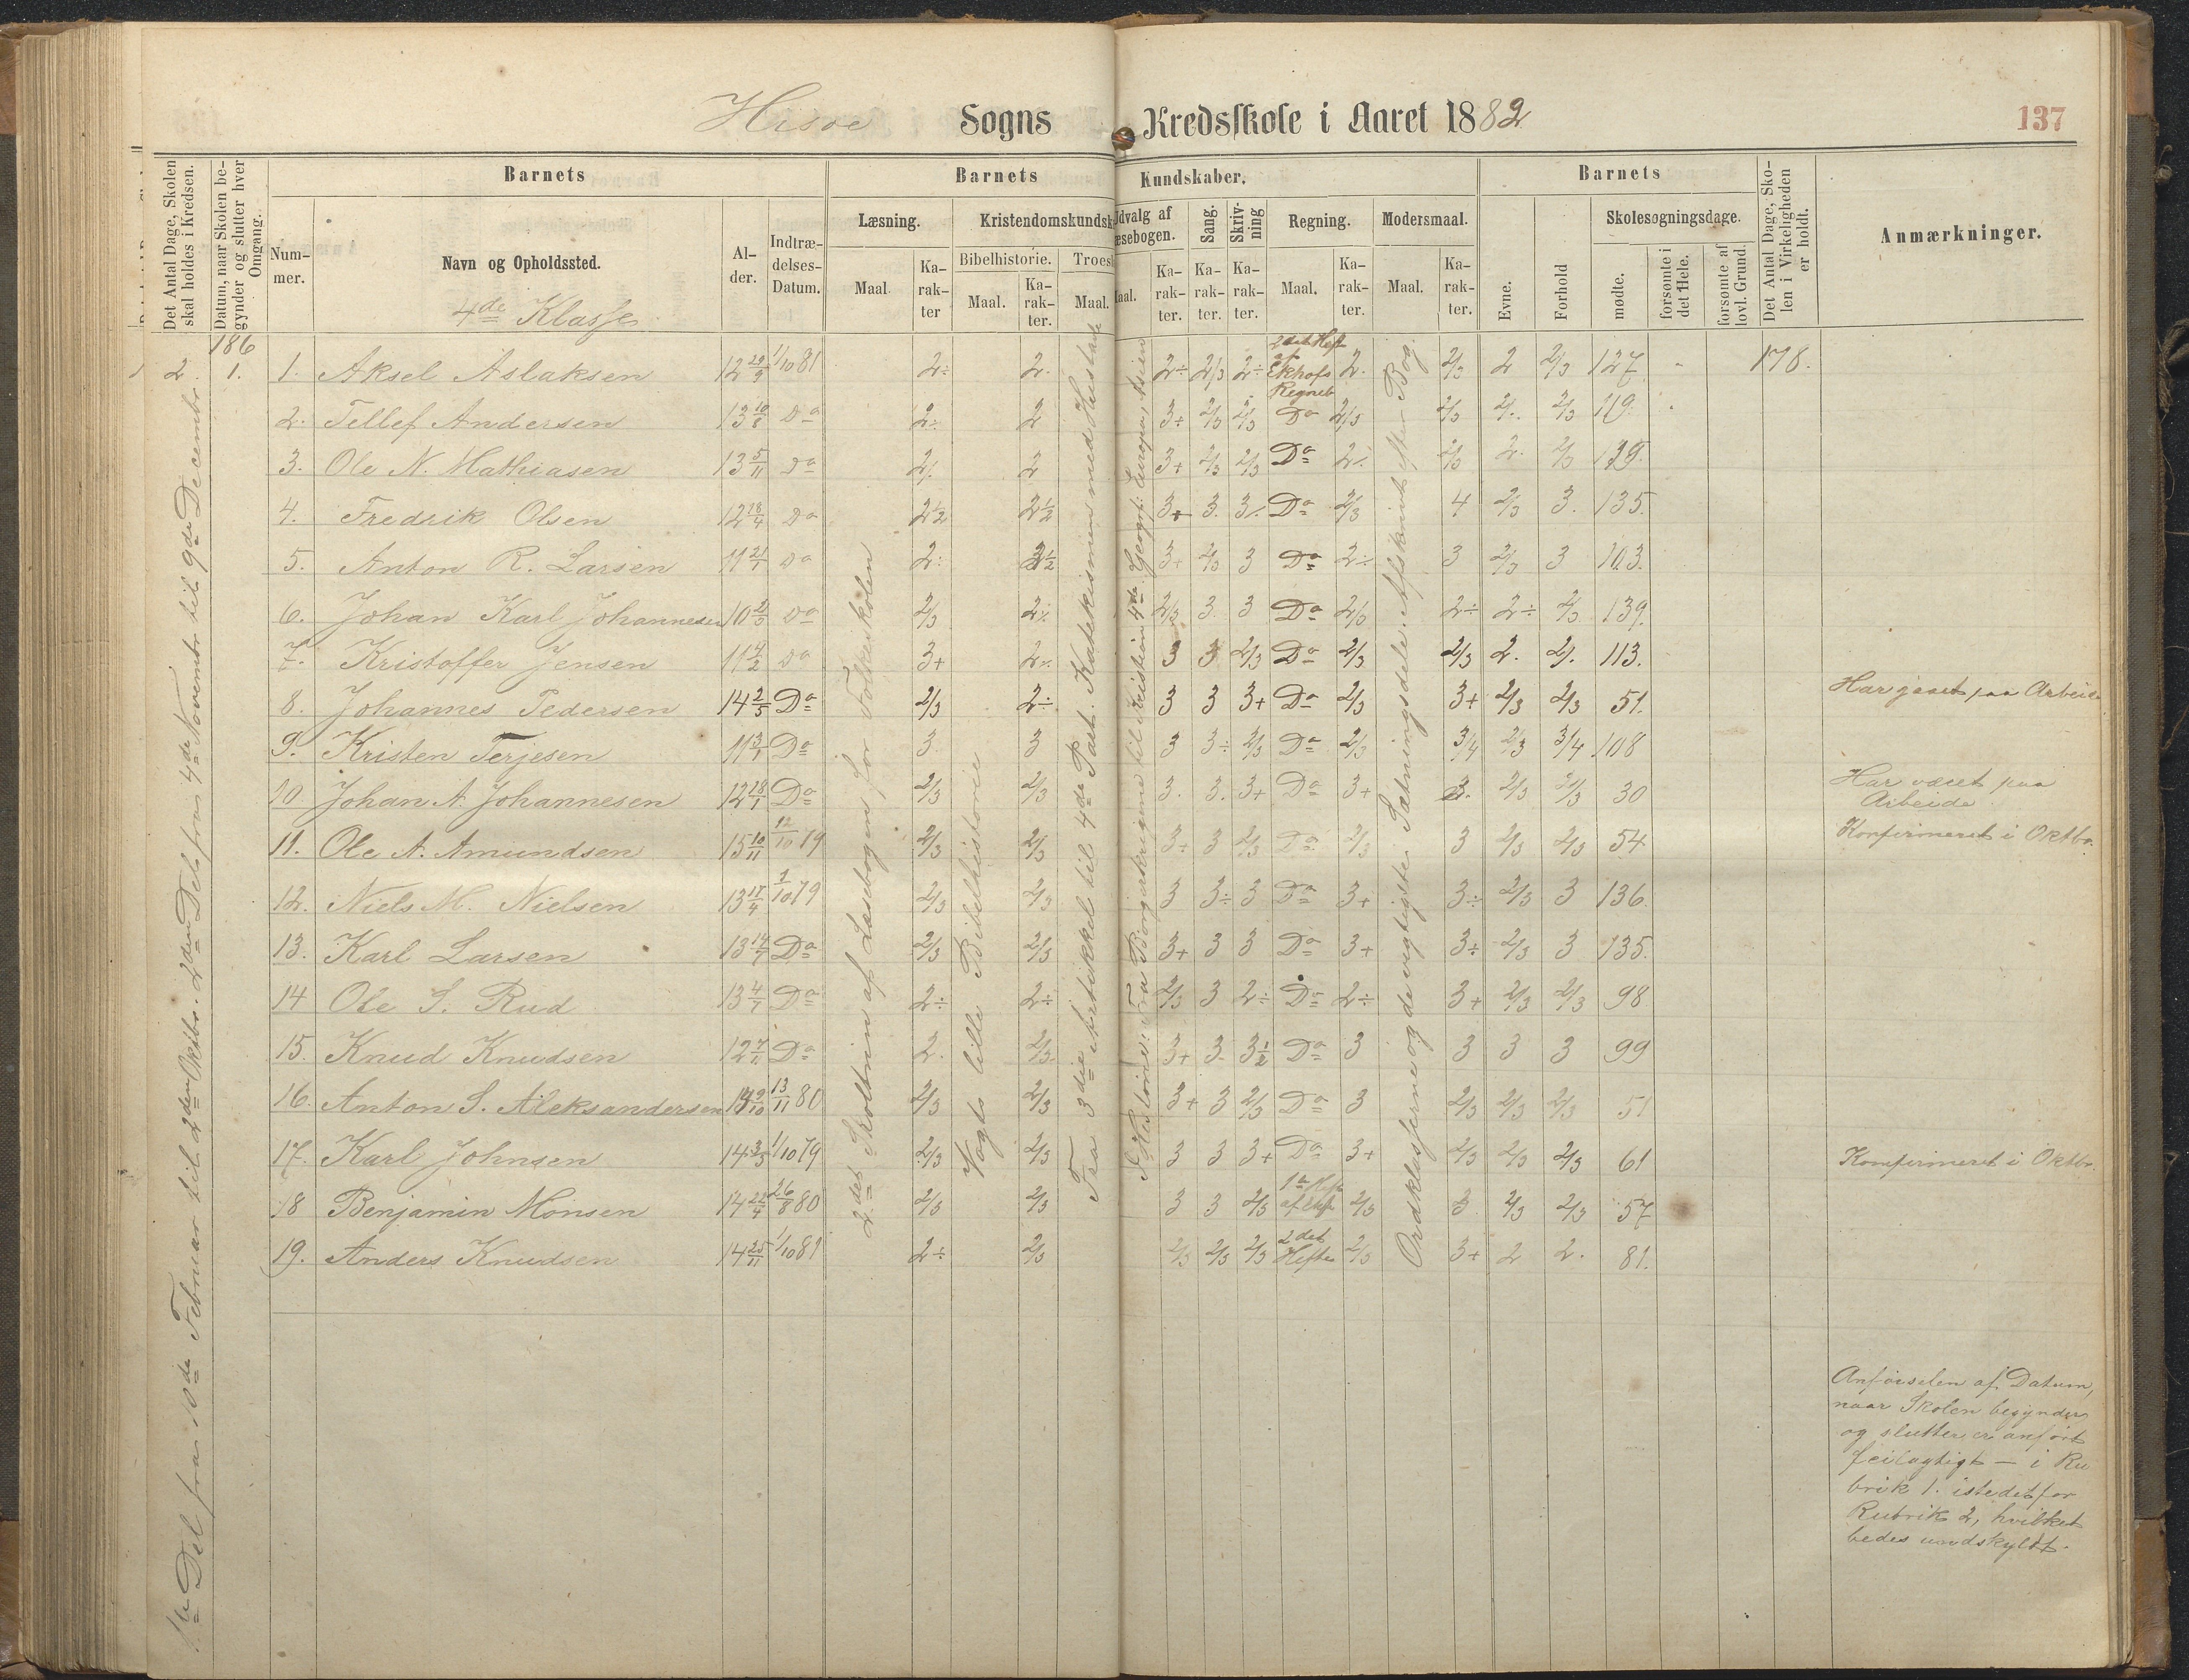 Hisøe Sogns Kredsskole i Aaret 1882
137
Det Antal Dage, Skolen skal holdes i Kredsen.
Datum, naar Skolen begynder og slutter hver Omgang.
Barnets
Nummer.
Navn og Opholdssted.
4de Klasse
Alder.
Indtrædelses-Datum.
Barnets Kundskaber.
Læsning.
Maal
Karakter
Kristendomskundsk
Bibelhistorie.
Maal.
Karakter.
Troes
Maal.
Udvalg af
æsebogen.
Maal.
Karakter.
Sang.
Karakter.
Skrivning
Karakter.
Regning.
Maal.
Karakter.
Modersmaal.
Maal.
Karakter.
Barnets
Evne.
Forhold
Skolesøgningsdage.
mødte.
forsømte i det Hele.
forsømte af lovl. Grund.
Det Antal Dage, Skolen i Virkeligheden er holdt.
Anmærkninger.
2. 186 1.
1. Aksel Aslaksen 12 29/9 1/10 81 2÷ 2. 2÷ 2/3 2÷ 2det Hefte af Ekhofs Regneb 2. 2/3 2 2/3 127 - 178.
2. Tellef Andersen 13 10/8 Do 2÷ 2 3+ 2/3 2/3 Do 2/3 2/3 2/. 2/3 119.
3. Ole N. Mathiasen 13 5/11 Do 2/. 2 3+ 2/3 2/3 Do 2/. 2/3 2. 2/3 139.
4. Fredrik Olsen 12 18/4 Do 2½ 2½ 3+ 3. 3/. Do 2/3 4 2/3 3. 135.
5. Anton R. Larsen 11 21/1 Do 2÷ 2½ 3+ 2/3 3 Do 2÷ 3 2/3 3 103.
6. Johan Karl Johannesen 10 2/5 Do 2/3 2/. 2/3 3. 3 Do 2/3 2÷ 2÷ 2/3 139.
7. Kristoffer Jensen 11 4/2 Do 3+ 2/. 3 3 2/3 Do 2/3 2/3 2. 2/. 113.
8. Johannes Pedersen 14 2/5 Do 2/3 2÷ 3 3 3+ Do 2/3 3+ 2/3 2/3 51. Har været paa Arbeide
9. Kristen Terjesen 11 3/1 Do 3. 3 3 3÷ 2/3 Do 2/3 3/4 2/3 3/4 108
10 Johan A. Johannesen 12 18/1 Do 2/3 2/3 3. 3. 3+ Do 3+ 3. 2/3 2/3 30 Har været paa Arbeide
11. Ole A. Amundsen 15 10/11 12/10 79 2/3 2/3 3÷ 3 2/3 Do 2/3 3 2/3 2/3 54 Konfirmeret i Oktbr.
12. Niels M. Nielsen 13 17/4 1/10 79 2/3 2/3 3 3÷ 3 Do 3+ 3÷ 2/3 3 136.
13. Karl Larsen 13 14/7 Do 2/3 2/3 3+ 3 3 Do 3+ 3÷ 2/3 3 135.
14 Ole S. Rud 13 4/7 Do 2÷ 2÷ 2/3 3 2÷ Do 2÷ 3+ 2/3 2/3 98
15. Knud Knudsen 12 7/11 Do 2. 2/3. 3+ 3. 3½ Do 3 3 3 3 99
16. Anton S. Aleksandersen 14 9/10 13/11 80 2/3 2/3 3+ 3 2/3 Do 3 2/3 2/3 2/3 51
17. Karl Johnsen 14 3/5 1/10 79 2/3 2/3 3 3 3+ Do 3+ 2/3 2/3 2/3 61 Konfirmeret i Oktbr.
18 Benjamin Monsen 14 21/4 26/8 80 2/3 2/3 3 3 2/3 1ste Hefte 2/3 3 2/3 2/3 57
19. Anders Knudsen 14 25/11 1/10 81 2÷ 2/3 2/3 2/3 2/3 2det Hefte 2/3 3+ 2 2. 81.
1ste Del fra 10de Februar til 2den Oktbr. 2den Del fra 4de Novembr til 9de Decembr.
2det Skoltrin af Læsebogen for Folkeskolen
Vogts lille Bibelhistorie
Fra 3die Artikkel til 4de Part. Katekismen med Hustavle
Historie: Fra Borgerkrigene til Kristian 4de. Geografi: Europa, Asien
Ordklasserne og de vigtigste Sætningsdele. Afskrivt efter Bog
Anførselen af Datum,
naar Skolen begynder
og slutter er anført
feilagtigt — i Ru
brik 1. istedetfor
Rubrik 2, hvilket
bedes undskyldt.